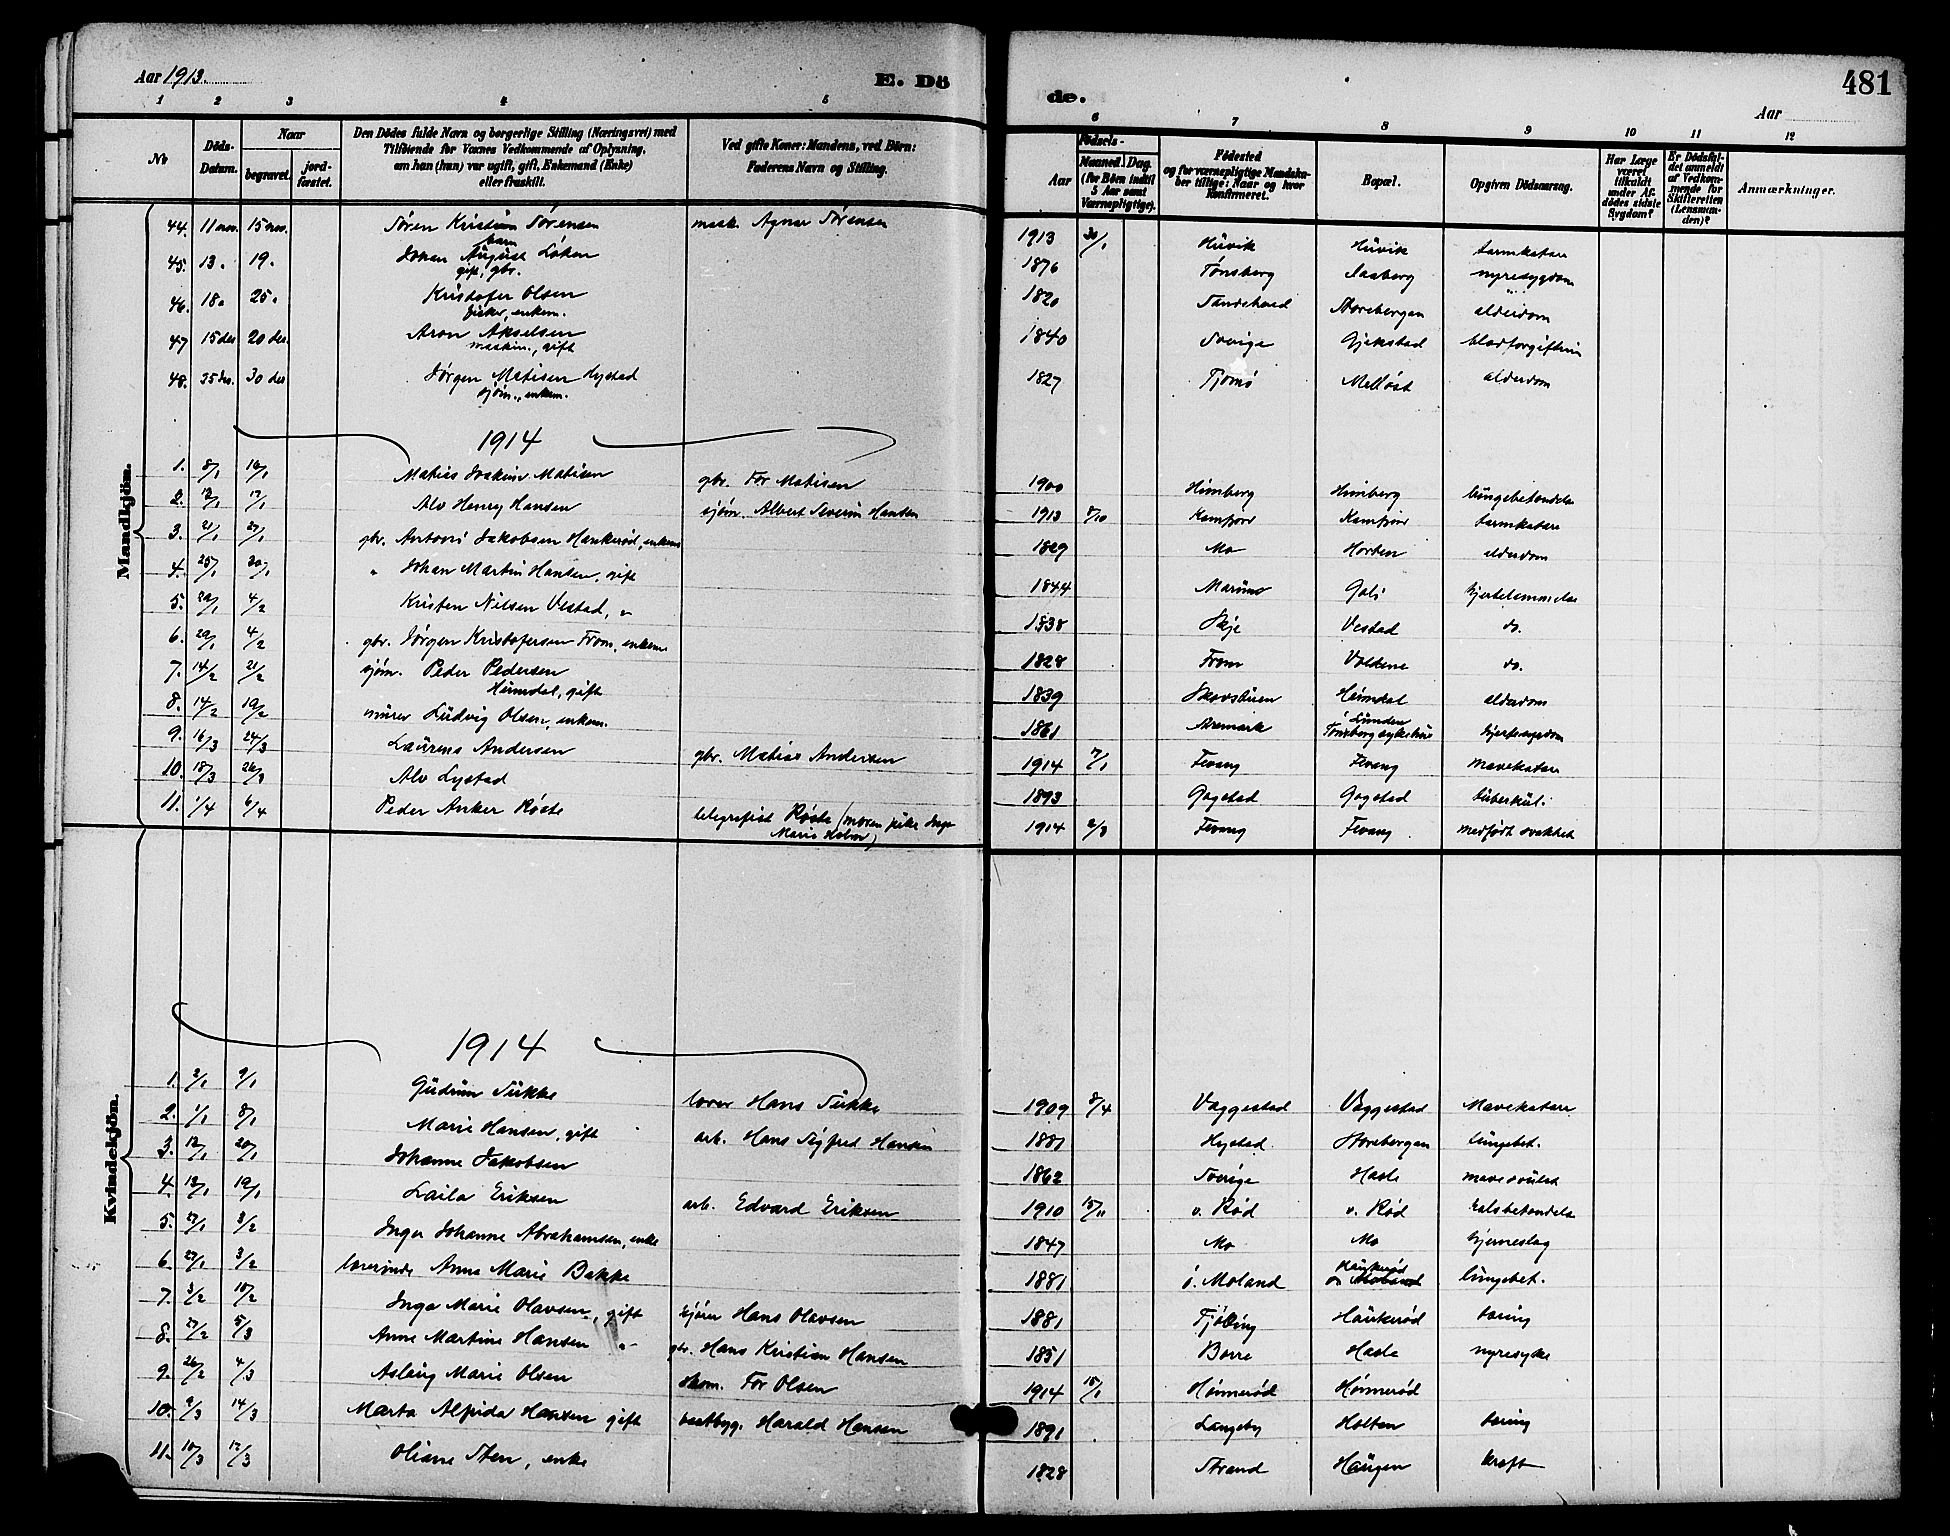 Aar 1913.
E. Dö
de.
481
Aar
1 2 3 4 5 6 7 8 9 10 11 12
No
Döds-Datum.
Naar
begravet.
jord-fæstet.
Den Dödes fulde Navn og borgerlige Stilling (Næringsvei) med
Tilföiende for Voxnes Vedkommende af Oplysning,
om han (hun) var ugift, gift, Enkemand (Enke)
eller fraskilt.
Ved gifte Koner: Mandens, ved Börn:
Faderens Navn og Stilling.
Födsels-
Aar
Maaned. Dag.
(for Börn indtil
5 Aar samt
Værnepligtige).
Födested
og for værnepligtige Mandska-
ber tillige: Naar og hvor
Konfirmeret.
Bopæl.
Opgiven Dödsaarsag.
Har Læge
været
tilkaldt
under Af-
dödes sidste
Sygdom?
Er Dödsfal-
det anmeldt
af Vedkom-
mende for
Skifteretten
(Lensman-
den)?
Anmærkninger.
Mandkjön.
44. 11 nov. 15 nov. Søren Kristian Sørensen mask. Agnar Sørensen 1913 30/1 Huvik Huvik tarmkatar
barn
45. 13. 19. Johan August Løken 1876 Tønsberg Aasberg nyresygdom
gift, gbr.
46. 18. 25. Kristofer Olsen 1820 Sandeherred Storebergan alderdom
fisker, enkem.
47 15 des 20 des. Aron Akselsen 1840 Sverige Gjekstad blodforgiftnin
maskin., gift
48. 25 des. 30 des Jørgen Matisen Hystad 1827 Tjømø Melløst alderdom
sjøm., enkem.
1914
1. 8/1 16/1 Matias Joakim Matisen gbr. Tor Matisen 1900 Himberg Himberg lungebetændelse
2. 12/1 17/1 Alv Henry Hansen sjøm. Albert Severin Hansen 1913 8/10 Kamfjord Kamfjord tarmkatar
3. 21/1 27/1 gbr. Antoni Jakobsen Haukerød, enkem 1829 Mo Horten alderdom
4. 25/1 30/1 " Johan Martin Hansen, gift 1844 Marum Goli hjertelammelse
5. 29/1 4/2 Kristen Nilsen Vestad, " 1838 Skje Vestad do.
6. 29/1 4/2 gbr. Jørgen Kristofersen From, enkem. 1828 From Valdene do.
7. 14/2 21/2 sjøm. Peder Pedersen 1839 Skovstuen Heimdal alderdom
Heimdal, gift
8. 14/2 19/2 murer Ludvig Olsen, enkem. 1861 Aremark Lunden
Tønsberg sykehus hjertesygdom
9. 16/3 24/3 Laurens Andersen gbr. Matias Andersen 1914 7/1 Fevang Fevang mavekatar
10. 18/3 26/3 Alv Lystad 1893 Gogstad Gogstad tuberkul.
11. 1/4 6/4 Peder Anker Røste telegrafist Røste (moren pike Inga 1914 2/3 Fevang Fevang medfødt svakhet
Marie )
Kvindekjön.
1914
1. 2/1 9/1 Gudrun Sukke lærer Hans Sukke 1909 8/4 Vaggestad Vaggestad Mavekatar
2. 1/1 8/1 Marie Hansen, gift arb. Hans Sigfred Hansen 1881 Hystad Storebergan lungebet.
3. 12/1 20/1 Johanne Jakobsen 1862 Sverige Hasle mavesvulst
4. 13/1 19/1 Laila Eriksen arb. Edvard Eriksen 1910 15/11 v. Rød v. Rød halsbetændelse
5. 27/1 3/2 Inger Johanne Abrahamsen, enke 1847 Mo Mo hjerneslag
6. 27/1 3/2 lærerinde Anna Marie Bakke 1881 ö. Moland Haukerød lungebet.
7. 3/2 10/2 Inga Marie Olavsen, gift sjøm Hans Olavsen 1881 Tjølling Haukerød tæring
8. 27/2 5/3 Anne Martine Hansen " gbr. Hans Kristian Hansen 1851 Borre Hasle nyresyke
9. 26/2 4/3 Aslaug Marie Olsen skom. Tor Olsen 1914 15/1 Hunnerød Hunnerød
10. 9/3 14/3 Marta Alfida Hansen gift baatbyg. Harald Hansen 1891 Langeby Holtan tæring
11. 10/3 17/3 Oliane Sten, enke 1828 Strand Haugen kræft